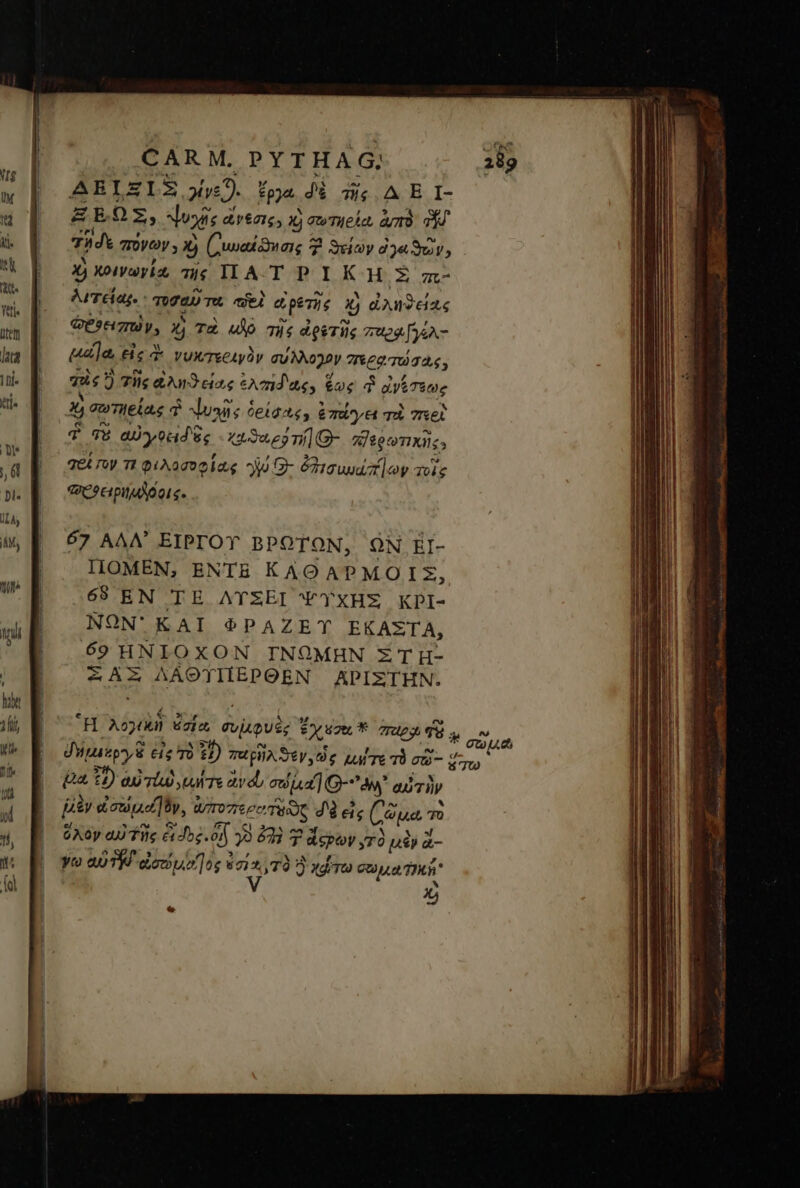 CARM. PYTHAG. 289
ΔΕΙΞΙΣ γίνε). ἔργα δὲ τῆς ΔΕΙ-
ΞΕΩΣ, ψυχῆς ἄνεσις, καὶ σωτηεία ἀπὸ τῶν
τῇδε πόνων, καὶ συναίσθησις τῶν θείων ἀγαθῶν,
καὶ κοινωνία τῆς ΠΑΤΡΙΚΗΣ πο-
λιτείας. τοσαῦτα περὶ ἀρετῆς καὶ ἀληθείας
προειπὼν, καὶ τὰ μὲν τῆς ἀρετῆς παραγγέλ-
ματα εἰς τὸν νυκτερινὸν σύλλογον περατώσας,
τὰς δὲ τῆς ἀληθείας ἐλπίδας, ἕως τῆς ἀνέσεως
καὶ σωτηείας τῆς ψυχῆς ὁρίσας, ἐπάγει τὰ περὶ
τῆς τοῦ αὐγοειδοῦς καθαρότητος πτερωτικῆς,
τρίτον τι φιλοσοφίας γένος ἐπισυνάπτων τοῖς
προειρημένοις.
67 ΑΛΛ' ΕΙΡΓΟΥ ΒΡΩΤΩΝ, ΩΝ ΕΙ-
ΠΟΜΕΝ, ΕΝΤΕ ΚΑΘΑΡΜΟΙΣ,
68 ΕΝ ΤΕ ΛΥΣΕΙ ΨΥΧΗΣ ΚΡΙ-
ΝΩΝ· ΚΑΙ ΦΡΑΖΕΥ ΕΚΑΣΤΑ,
69 ΗΝΙΟΧΟΝ ΓΝΩΜΗΝ ΣΤΗ-
ΣΑΣ ΛΑΘΥΠΕΡΘΕΝ ΑΡΙΣΤΗΝ.
Ἡ λογικὴ οὐσία συμφυὲς ἔχουσα * παρὰ τοῦ
* σῶμα
δημιουργοῦ εἰς τὸ εἶναι παρῆλθεν, ὡς μήτε τὸ σῶ-
οὕτω
μα εἶναι αὐτὴν, μήτε ἄνευ σώματος· ἀλλ' αὐτὴν
μὲν ἀσώματον, ἀποπερατοῦσθαι δὲ εἰς σῶμα τὸ
ὅλον αὐτῆς εἶδος. οἷ γὸ ἐπὶ τῶν ἄστρων, τὸ μὲν ἄ-
νω αὐτῶν ἀσώματος οὐσία, τὸ δὲ κάτω σωματική·
V
καὶ